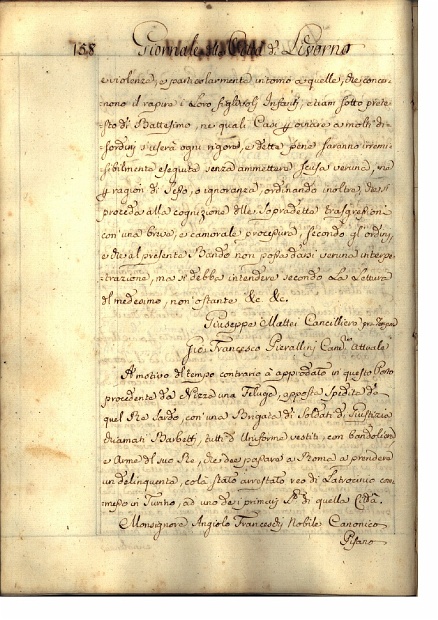 158 Giornale della Città di Livorno
e violenza, e particolarmente intorno a quelle, che concer-
nono il rapire i loro figlioli Infanti, etiam sotto prete-
sto di Battesimo, ne quali Casi p ovviare a molti di-
sordini s'userà ogni rigore, e dette pene saranno irremi-
sibilmente eseguite senza ammettere scusa veruna, ne
p ragion di sesso, o ignoranza, ordinando inoltre, che si
proceda alla cognizione delle sopradette trasgressioni
con una breve, e camerale procesura, secondo gl'ordini,
e che al presente Bando non possa darsi veruna interpe-
trazione, ma si debba intendere secondo La Lettera
del medesimo, non ostante &c. &c.
Giuseppe Mattei Cancilliero pro tempe
Gio: Francesco Pierallini Canre. Attuale
A motivo del tempo contrario è approdato in questo Porto
procedente da Nizza una Feluga, apposta spedita da
quel Re Sardo, con una Brigata di Soldati di Giustizia
chiamati Barbetti, tutti d'Uniforme vestiti, con bandoliera
e Arme del suo Re, che dee passare a Roma a prendere
un delinquente, colà stato arrestato reo di Latrocinio com-
messo in Turino, ad uno de i primevi di quella Città.
Monsignore Angiolo Franceschi Nobile Canonico
Pisano